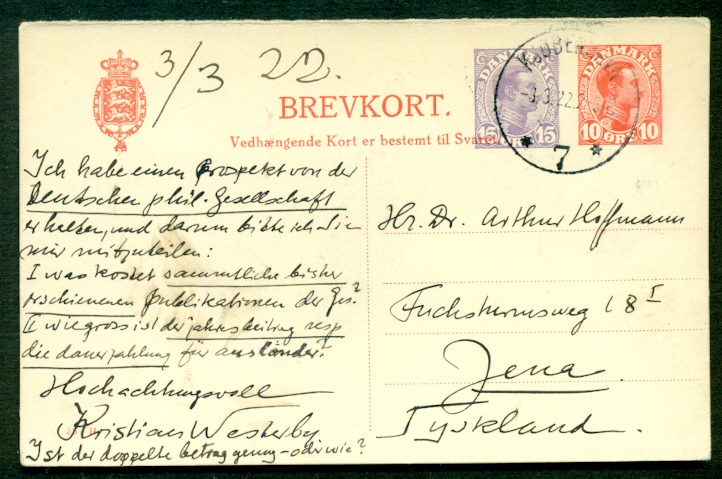 3/3 22.
BREVKORT.
Vedhængende Kort er bestemt til Svaret.
DANMARK
15 15
DANMARK
10 ØRE 10
KJØBENH
-3.3.22.2
* 7 *
Ich habe einen Prospekt von der
Deutschen phil. Gesellschaft
erhalten, und darum bitte ich Sie
mir mitzuteilen:
I was kostet sammtliche bisher
erschienenen Publikationen der Ges.?
II wie gross ist der jahresbeitrag resp
die dauerzahlung für ausländer?
Hochachtungsvoll
Kristian Westerby
Ist der doppelte betrag genug – oder wie?
Hr. Dr. Arthur Hoffmann
Fuchsturmsweg 18 I
Jena.
Tyskland.